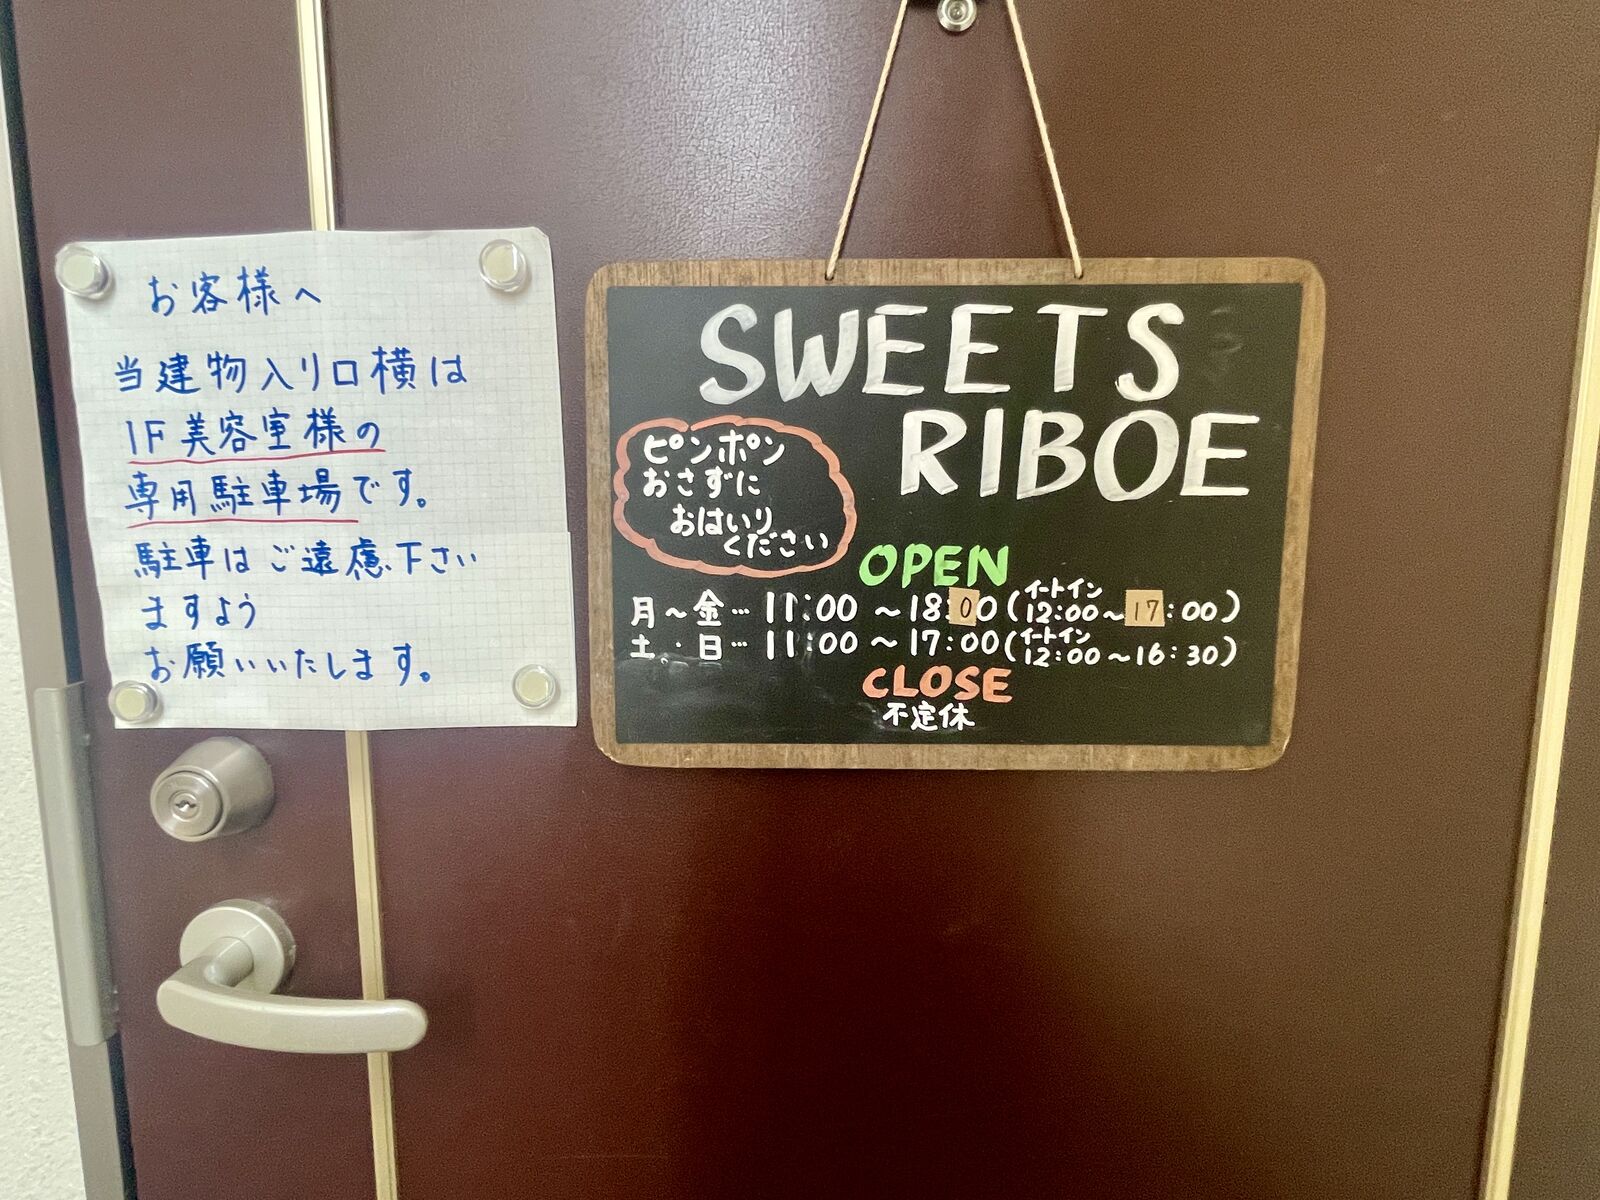 お客様へ
当建物入り口横は
1F美容室様の
専用駐車場です。
駐車はご遠慮下さい
ますよう
お願いいたします。
SWEETS
RIBOE
ピンポン
おさずに
おはいり
ください
OPEN
月～金…11:00～18:00(イートイン 12:00～17:00)
土・日…11:00～17:00(イートイン 12:00～16:30)
CLOSE
不定休